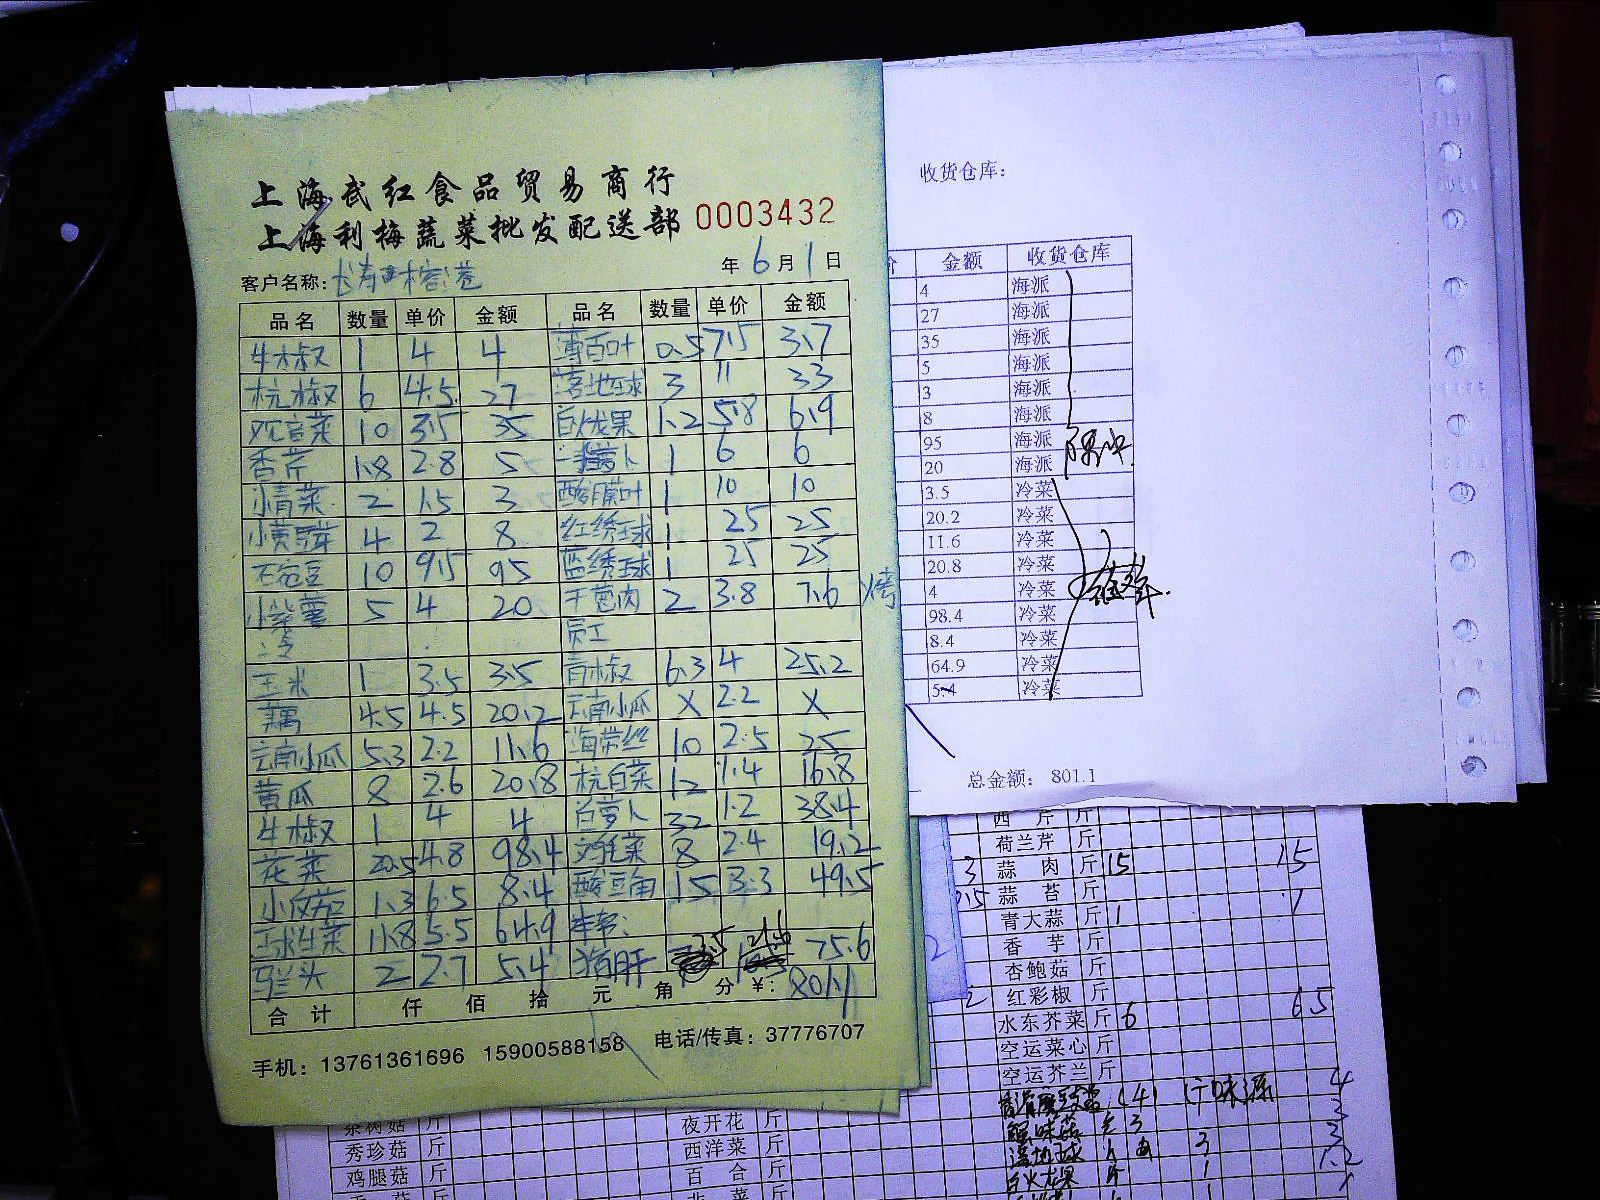 上海武红食品贸易商行
上海利梅蔬菜批发配送部 0003432
年 6 月 1 日
客户名称:
品名 数量 单价 金额 品名 数量 单价 金额
牛椒 1 4 4 薄百叶 0.5 7.5 3.7
杭椒 6 4.5 27 落地球 3 11 33
观音菜 10 3.5 35 白火龙果 1.2 5.8 6.9
香芹 1.8 2.8 5 萝卜 1 6 6
小青菜 2 1.5 3 酸膜叶 1 10 10
小黄豆芽 4 2 8 红绣球 1 25 25
荷兰豆 10 9.5 95 蓝绣球 1 25 25
小紫薯 5 4 20 干葱肉 2 3.8 7.6 烤
冷 员工
玉米 1 3.5 3.5 青椒 6.3 4 25.2
藕 4.5 4.5 20.2 云南小瓜 X 2.2 X
云南小瓜 5.3 2.2 11.6 海带丝 10 2.5 25
黄瓜 8 2.6 20.8 杭白菜 12 1.4 16.8
牛椒 1 4 4 白萝卜 32 1.2 38.4
花菜 20.5 4.8 98.4 鸡毛菜 8 2.4 19.2
小皮茄 1.3 6.5 8.4 酸豆角 15 3.3 49.5
球生菜 11.8 5.5 64.9
马兰头 2 2.7 5.4 猪肝 3.5 21.6 75.6
合计 仟 佰 拾 元 角 分 ¥: 801.1
手机: 13761361696 15900588158 电话/传真: 37776707
收货仓库:
价 金额 收货仓库
4 海派
27 海派
35 海派
5 海派
3 海派
8 海派
95 海派
20 海派
3.5 冷菜
20.2 冷菜
11.6 冷菜
20.8 冷菜
4 冷菜
98.4 冷菜
8.4 冷菜
64.9 冷菜
5.4 冷菜
总金额: 801.1
西芹 斤
荷兰芹 斤
3 蒜肉 斤 15 15
0.5 蒜苔 斤
青大蒜 斤 1 1
香芋 斤
杏鲍菇 斤
2 红彩椒 斤
水东芥菜 斤 6 6.5
空运菜心 斤
空运芥兰 斤
(4) 4
蟹味菇 3 3
落地球 斤 3 3
白火龙果 斤 1 1.2
茶树菇 斤 夜开花 斤
秀珍菇 斤 西洋菜 斤
鸡腿菇 斤 百合 斤